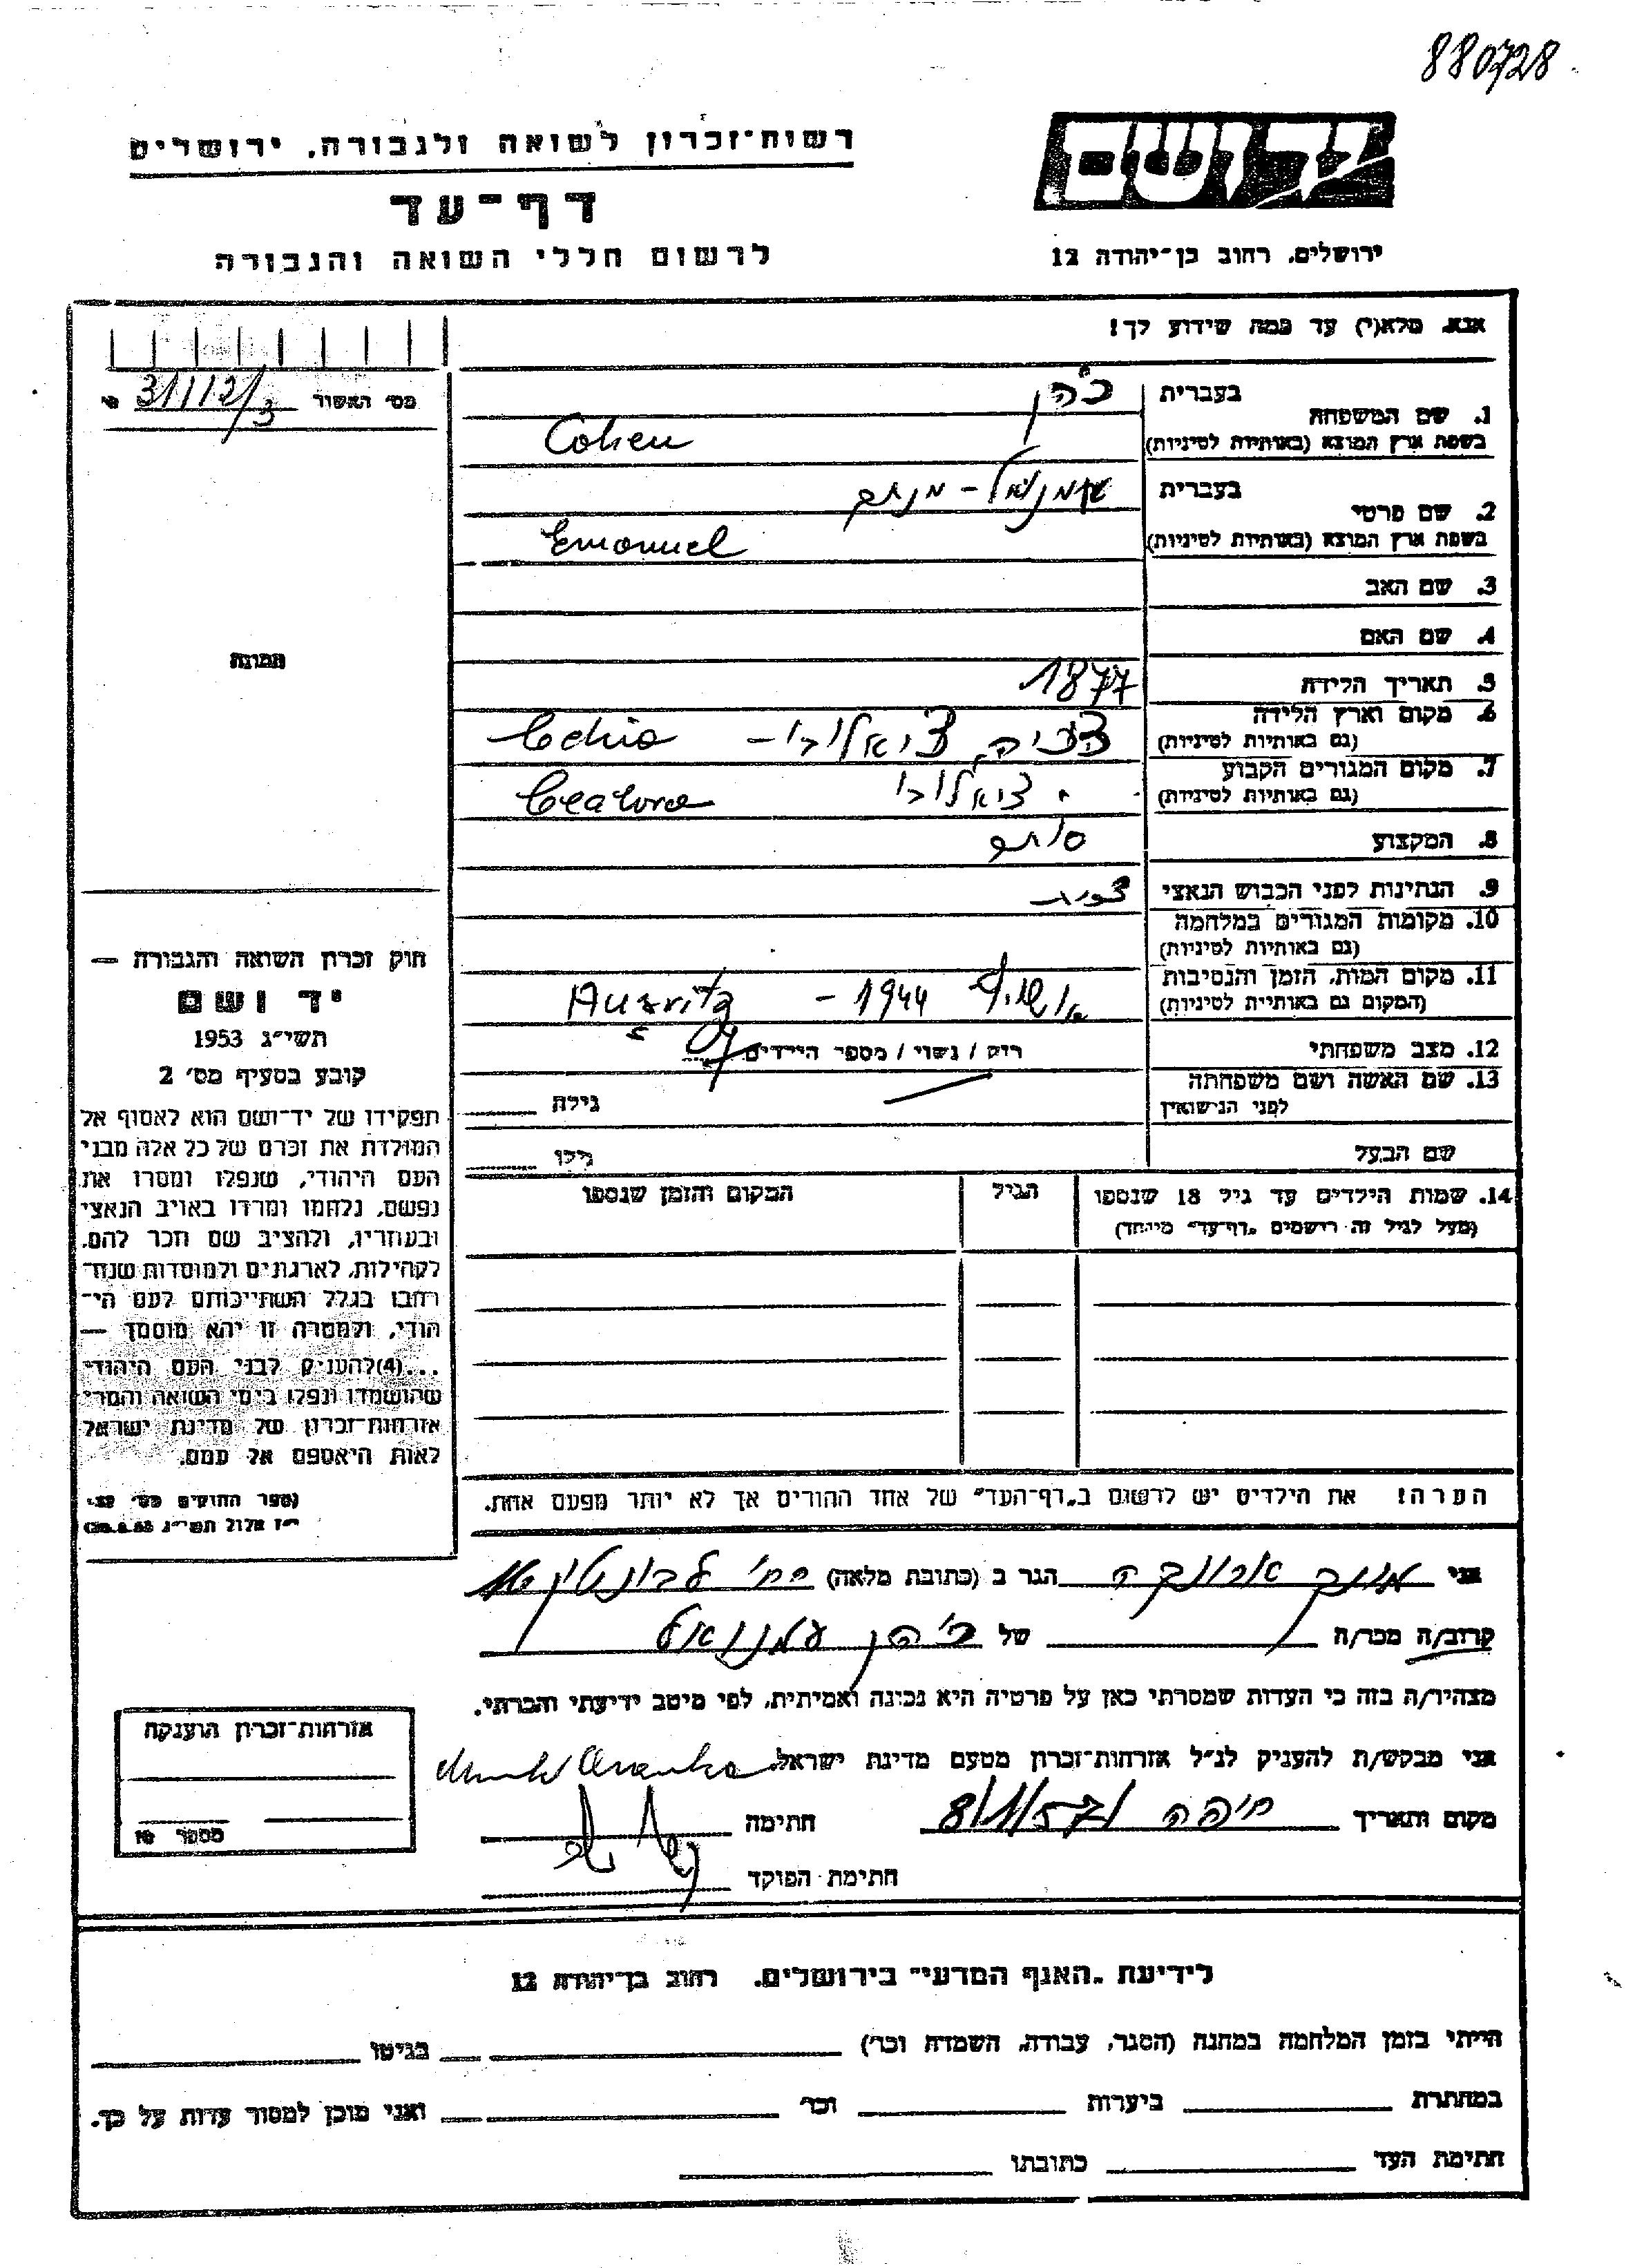 880728
רשות־זכרון לשואה ולגבורה, ירושלים
דף־עד
לרשום חללי השואה והגבורה
יד ושם
ירושלים, רחוב בן־יהודה 12
אנא, מלא(י) עד כמה שידוע לך!
מס' האשור 31112/3
1. שם המשפחה
בעברית כהן
בשפת ארץ המוצא (באותיות לטיניות) Cohen
2. שם פרטי
בעברית עמנואל - מנחם
בשפת ארץ המוצא (באותיות לטיניות) Emanuel
3. שם האב
4. שם האם
5. תאריך הלידה 1877
6. מקום וארץ הלידה
(גם באותיות לטיניות)
7. מקום המגורים הקבוע
(גם באותיות לטיניות)
8. המקצוע סוחר
9. הנתינות לפני הכבוש הנאצי
10. מקומות המגורים במלחמה
(גם באותיות לטיניות)
11. מקום המות, הזמן והנסיבות 1944 -
(המקום גם באותיות לטיניות)
12. מצב משפחתי רוק / נשוי / מספר הילדים
13. שם האשה ושם משפחתה
לפני הנישואין
גילה
שם הבעל
גילו
14. שמות הילדים עד גיל 18 שנספו
(מעל לגיל זה רושמים „דף־עד" מיוחד)
הגיל
המקום והזמן שנספו
הערה! את הילדים יש לרשום ב„דף־העד" של אחד ההורים אך לא יותר מפעם אחת.
תמונה
חוק זכרון השואה והגבורה —
יד ושם
תשי"ג 1953
קובע בסעיף מס' 2
תפקידו של יד־ושם הוא לאסוף אל
המולדת את זכרם של כל אלה מבני
העם היהודי, שנפלו ומסרו את
נפשם, נלחמו ומרדו באויב הנאצי
ובעוזריו, ולהציב שם וזכר להם,
לקהילות, לארגונים ולמוסדות שנח־
רבו בגלל השתייכותם לעם הי־
הודי, ולמטרה זו יהא מוסמך —
...(4)להעניק לבני העם היהודי
שהושמדו ונפלו בימי השואה והמרי
אזרחות־זכרון של מדינת ישראל
לאות היאספם אל עמם.
(ספר החוקים מס'
י"ז אלול תשי"ג
אני הגר ב (כתובת מלאה)
קרוב/ה מכר/ה של כהן עמנואל
מצהיר/ה בזה כי העדות שמסרתי כאן על פרטיה היא נכונה ואמיתית, לפי מיטב ידיעתי והכרתי.
אני מבקש/ת להעניק לנ"ל אזרחות־זכרון מטעם מדינת ישראל.
מקום ותאריך חיפה חתימה
חתימת הפוקד
אזרחות־זכרון הוענקה
מספר
לידיעת „האגף המדעי" בירושלים, רחוב בן־יהודה 12
הייתי בזמן המלחמה במחנה (הסגר, עבודה, השמדה וכו') בגיטו
במחתרת ביערות וכו' ואני מוכן למסור עדות על כך.
חתימת העד כתובתו